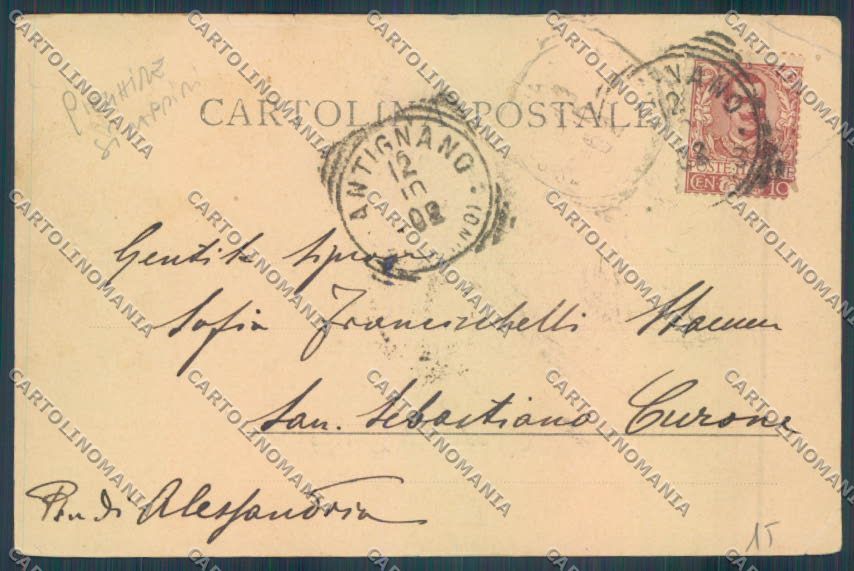 CARTOLINA POSTALE
ANTIGNANO
12
02
POSTE ITALIANE
CENT. 10
Gentile Signora
Sofia Franceschelli
San. Sebastiano Curone
Alessandria
15
CARTOLINOMANIA